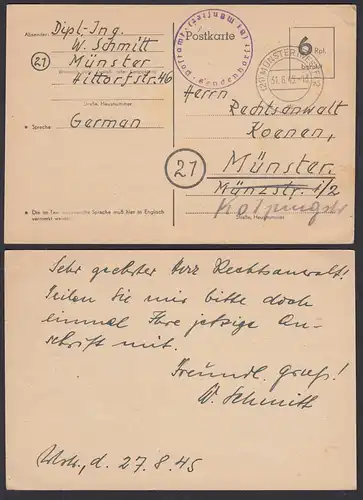 Absender: Dipl.-Ing.
W. Schmitt
21 Münster
Hittorfstr. 46
Straße, Hausnummer
* Sprache: German
* Die im Text verwendete Sprache muß hier in Englisch
vermerkt werden.
Postkarte
6 Rpf.
bezahlt
(21) MÜNSTER (WESTF)
31.8.45
Herrn
Rechtsanwalt
Koenen,
21 Münster.
Münzstr. 1/2
Kolpingstr
Straße, Hausnummer
Sehr geehrter Herr Rechtsanwalt!
Teilen Sie mir bitte doch
einmal Ihre jetzige An-
schrift mit.
Freundl. Gruß!
W. Schmitt
Mstr., d. 27.8.45